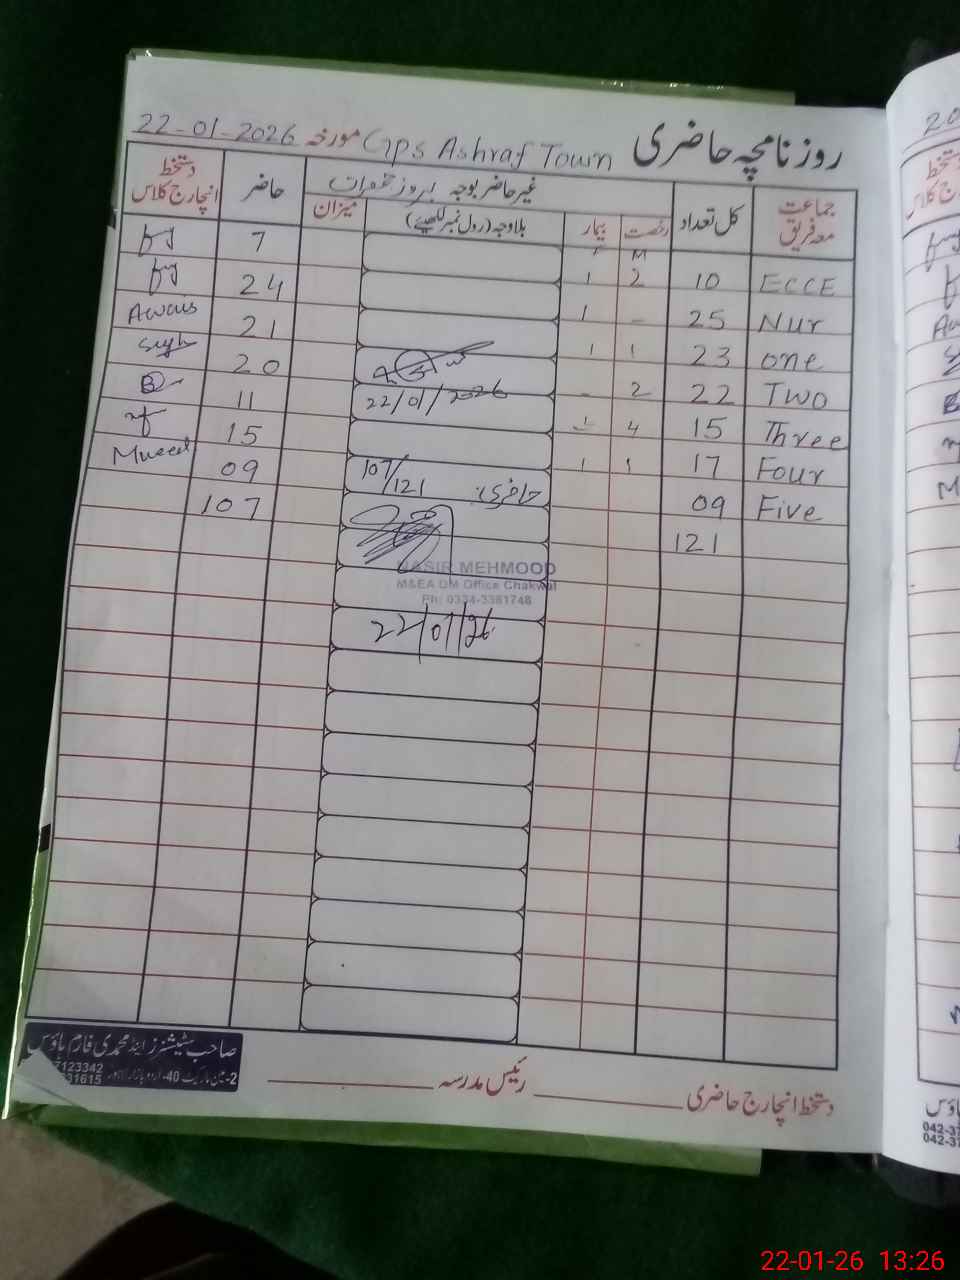 روزنامچہ حاضری Gps Ashraf Town مورخہ 22-01-2026
جماعت معہ فریق کل تعداد غیر حاضر بوجہ بروز جمعرات حاضر دستخط انچارج کلاس
رخصت بیمار بلاوجہ (رول نمبر لکھیئے) میزان
M F
ECCE 10 2 1 7
Nur 25 - 1 24
one 23 1 1 21 Awais
Two 22 2 - 20
22/01/2026
Three 15 4 - 11
Four 17 1 1 15
Five 09 09
حاضری: 107/121
121 107
NASIR MEHMOOD
M&EA DM Office Chakwal
Ph: 0334-3381748
22/01/26
دستخط انچارج حاضری رئیس مدرسہ
صاحب سٹیشنرز اینڈ محمدی فارم ہاؤس
7123342
31615
042-3
042-3
22-01-26 13:26